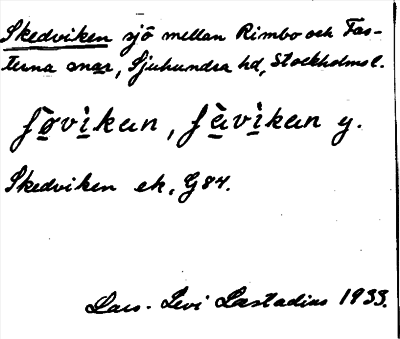 Skedviken sjö mellan Rimbo och Fas-
terna snar, Sjuhundra hd, Stockholms l.
fø̀vìkan, fàvìkan y.
Skedviken ek, G84.
Lars-Levi Læstadius 1933.